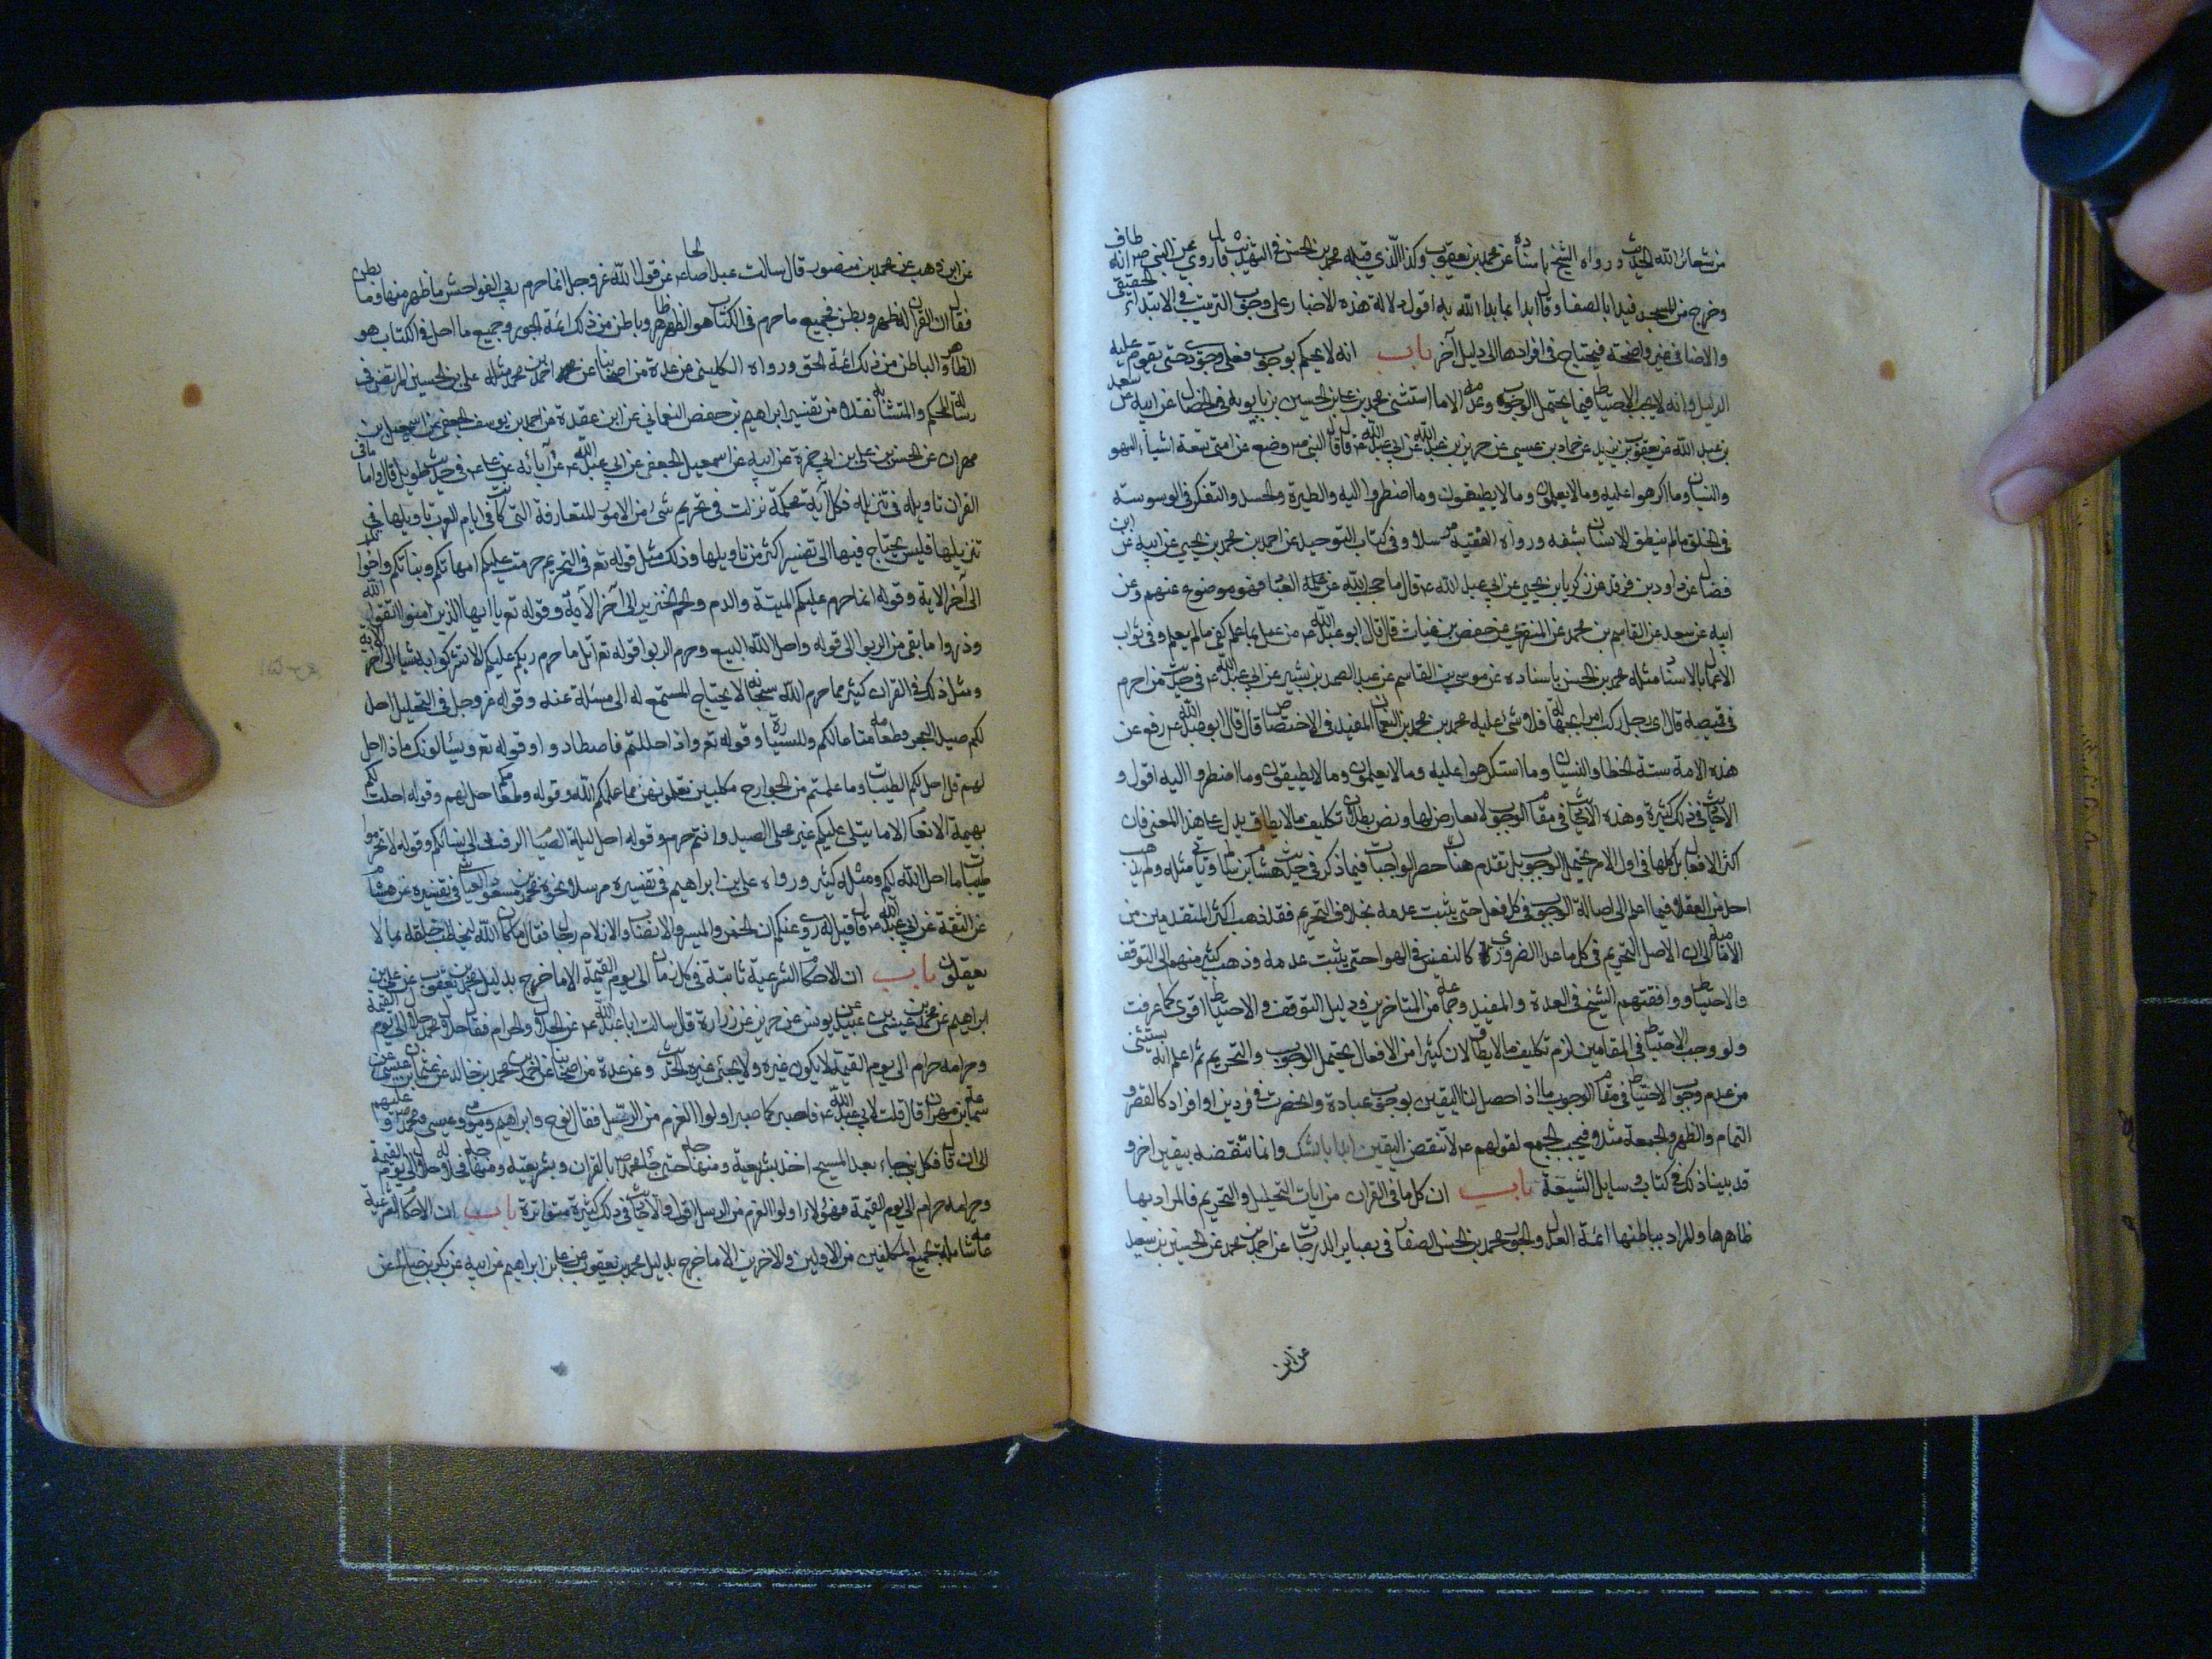 من شعائر الله الحديث ورواه الشيخ باسناده عن محمد بن يعقوب وكذا الذي قبله محمد بن الحسن في التهذيب قال روي عن النبي ص انه طاف
وخرج من المسجد فبدا بالصفا وقال ابدا بما بدا الله به اقول دلالة هذه الاخبار على وجوب الترتيب في الابتداء الحقيقي
والاضافي غير واضحة فيحتاج في افرادها الى دليل آخر باب انه لا يحكم بوجوب فعل وجودي حتى يقوم عليه
الدليل وانه لا يجب الاحتياط فيما يحتمل الوجوب وعدمه الا ما استثنى محمد بن علي بن الحسين بن بابويه في الخصال عن ابيه عن سعد
بن عبد الله عن يعقوب بن يزيد عن حماد بن عيسى عن حريز بن عبد الله عن ابي عبد الله ع قال قال النبي ص وضع عن امتي تسعة اشياء السهو
والنسيان وما اكرهوا عليه وما لا يعلمون وما لا يطيقون وما اضطروا اليه والطيرة والحسد والتفكر في الوسوسة
في الخلق ما لم ينطق الانسان بشفه ورواه الفقيه مرسلا وفي كتاب التوحيد عن احمد بن محمد بن يحيى عن ابيه عن ابن
فضال عن داود بن فرقد عن زكريا بن يحيى عن ابي عبد الله ع قال ما حجب الله علمه عن العباد فهو موضوع عنهم وعن
ابيه عن سعد عن القاسم بن محمد عن المنقري عن حفص بن غياث قال قال ابو عبد الله ع من عمل بما علم كفي ما لم يعلم وفي ثواب
الاعمال بالاسناد مثله محمد بن الحسن باسناده عن موسى بن القاسم عن عبد الصمد بن بشير عن ابي عبد الله ع في حديث من احرم
في قميصه قال اي رجل ركب امرا بجهالة فلا شئ عليه محمد بن محمد بن النعمان المفيد في الاختصاص قال قال ابو عبد الله ع رفع عن
هذه الامة ستة الخطا والنسيان وما استكرهوا عليه وما لا يعلمون وما لا يطيقون وما اضطروا اليه اقول و
الاحاديث في ذلك كثيرة وهذه الاحاديث في مقام الوجوب لا معارض لها ونص بطلان تكليف ما لا يطاق يدل على هذا المعنى فان
اكثر الافعال بل كلها في اول الامر يحتمل الوجوب بل تقدم هنا حصر الواجبات فيما ذكر في حديث هشام بن سالم وياتي مثله ولم يذهب
احد من العقلاء فيما اعلم الى اصالة الوجوب في كل فعل حتى يثبت عدمه بخلاف التحريم فقد ذهب اكثر المتقدمين من
الامامية الى ان الاصل التحريم في كل ما عدا الضروري كالتنفس في الهوا حتى يثبت عدمه وذهب كثير منهم الى التوقف
والاحتياط ووافقتهم الشيخ في العدة والمفيد وجماعة من المتاخرين ودليل التوقف والاحتياط اقوى كما عرفت
ولو وجب الاحتياط في المقامين لزم تكليف ما لا يطاق لان كثيرا من الافعال يحتمل الوجوب والتحريم ثم اعلم انه يستثنى
من عدم وجوب الاحتياط في مقام الوجوب ما اذا حصل لنا اليقين بوجوب عبادة وانحصرت في فردين او افراد كالقصر و
التمام والظهر والجمعة مثلا فيجب الجمع لقولهم ع لا تنقض اليقين ابدا بالشك وانما تنقضه بيقين اخر و
قد بينا ذلك في كتاب وسايل الشيعة باب ان كل ما في القران من ايات التحليل والتحريم فالمراد بها
ظاهرها والمراد بباطنها ائمة العدل والجور محمد بن الحسن الصفار في بصاير الدرجات عن احمد بن محمد عن الحسين بن سعيد
عن ابن
عن ابن وهب عن محمد بن منصور قال سالت عبدا صالحا عن قول الله عز وجل انما حرم ربي الفواحش ما ظهر منها وما بطن
فقال ان القران له ظهر وبطن فجميع ما حرم في الكتاب هو الظاهر وباطن من ذلك ائمة الجور وجميع ما احل في الكتاب هو
الظاهر والباطن من ذلك ائمة الحق ورواه الكليني عن عدة من اصحابنا عن احمد بن محمد مثله علي بن الحسين المرتضى في
رسالة المحكم والمتشابه نقلا من تفسير ابراهيم بن حفص النعماني عن ابن عقدة عن احمد بن يوسف الجعفي عن اسمعيل بن
مهران عن الحسن بن علي بن ابي حمزة عن ابيه عن اسمعيل الجعفي عن ابي عبد الله ع عن آبائه عن علي ع في حديث طويل قال واما ما في
القران تاويله في تنزيله فكل آية محكمة نزلت في تحريم شئ من الامور المتعارفة التي كانت في ايام العرب تاويلها في
تنزيلها فليس يحتاج فيها الى تفسير اكثر من تاويلها وذلك مثل قوله تع في التحريم حرمت عليكم امهاتكم وبناتكم واخواتكم
الى آخر الاية وقوله انما حرم عليكم الميتة والدم ولحم الخنزير الى آخر الآية وقوله تع يا ايها الذين امنوا اتقوا الله
وذروا ما بقي من الربوا الى قوله واحل الله البيع وحرم الربوا قوله تع اتل ما حرم ربكم عليكم الا تشركوا به شيئا الى آخر الاية
ومثل ذلك في القران كثير مما حرم الله سبحانه لا يحتاج المستمع له الى مسئلة عنه وقوله عز وجل في التحليل احل
لكم صيد البحر وطعامه متاعا لكم وللسيارة وقوله تع واذا حللتم فاصطادوا وقوله تع ويسئالونك ماذا احل
لهم قل احل لكم الطيبات وما علمتم من الجوارح مكلبين تعلمونهن مما علمكم الله وقوله وطعامكم حل لهم وقوله احلت لكم
بهيمة الانعام الا ما يتلى عليكم غير محلي الصيد وانتم حرم وقوله احل لكم ليلة الصيام الرفث الى نسائكم وقوله لا تحرموا
طيبات ما احل الله لكم ومثله كثير ورواه علي بن ابراهيم في تفسيره مرسلا نحوه محمد بن مسعود العياشي في تفسيره عن هشام
عن الثقة عن ابي عبد الله ع قال قيل له روي عنكم ان الخمر والميسر والانصاب والازلام رجال فقال ما كان الله ليخاطب خلقه بما لا
يعقلون باب ان الاحكام الشرعية ثابتة في كل زمان الى يوم القيمة الا ما خرج بدليل محمد بن يعقوب عن علي بن
ابراهيم عن محمد بن عيسى بن عبيد عن يونس عن حريز عن زرارة قال سالت ابا عبد الله ع عن الحلال والحرام فقال حلال محمد حلال الى يوم القيمة
وحرامه حرام الى يوم القيمة لا يكون غيره ولا يجئ غيره الحديث وعن عدة من اصحابنا عن احمد بن محمد بن خالد عن عثمان بن عيسى عن
سماعة بن مهران قال قلت لابي عبد الله ع فاصبر كما صبر اولوا العزم من الرسل فقال نوح وابراهيم وموسى وعيسى ومحمد ص وعليهم
الى ان قال فكل نبي جاء بعد المسيح اخذ بشريعته ومنهاجه حتى جاء محمد ص بالقران وبشريعته ومنهاجه فحلاله حلال الى يوم القيمة
وحرامه حرام الى يوم القيمة فهؤلاء اولوا العزم من الرسل اقول والاحاديث في ذلك كثيرة متواترة باب ان الاحكام الشرعية
عامة شاملة لجميع المكلفين من الاولين والاخرين الا ما خرج بدليل محمد بن يعقوب عن علي بن ابراهيم عن ابيه عن بكر بن صالح عن